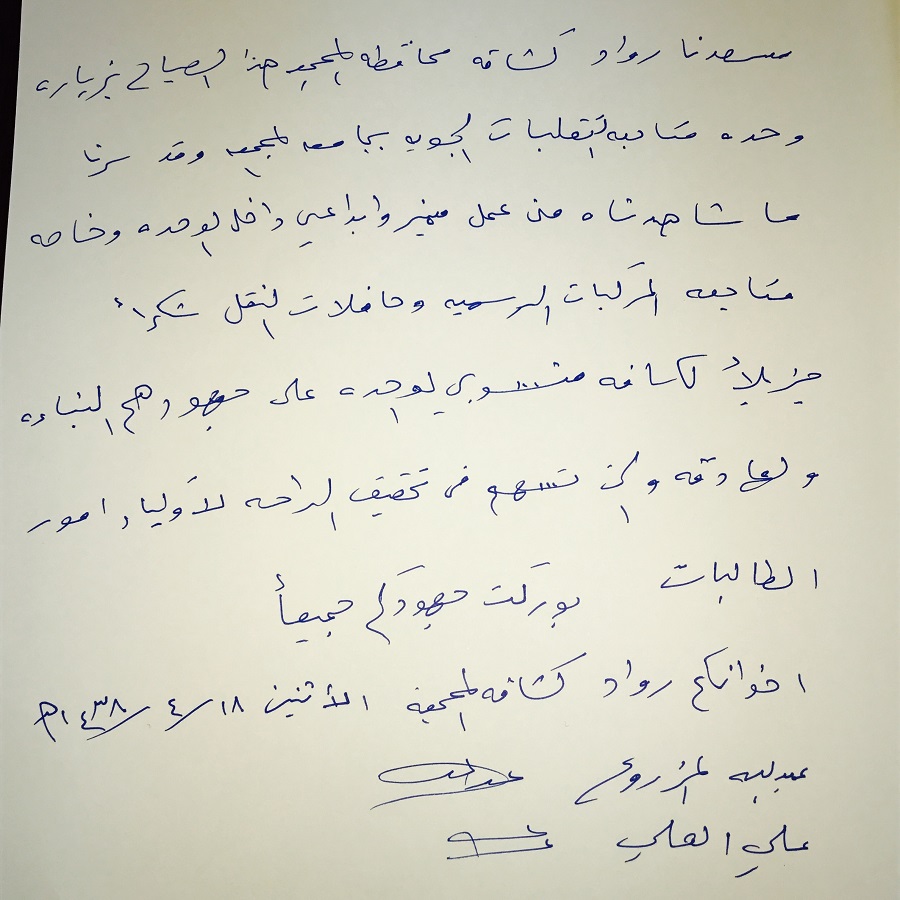 سعدنا رواد كشافه محافظه المجمعه هذا الصباح بزياره
وحده متابعه التقلبات الجويه بجامعه المجمعه وقد سرنا
ما شاهدناه من عمل مميز وابداعي داخل الوحده وخاصه
متابعه المركبات الرسميه وحافلات النقل شكراً
جزيلاً لكافه منسوبي الوحده على جهودهم البناءه
والصادقه والتي تسهم في تحقيق الراحه لأولياء امور
الطالبات بوركت جهودكم جميعاً
اخوانكم رواد كشافه المجمعه الأثنين ١٨/٤/١٤٣٨هـ
عبدالله المزروع
علي العلي